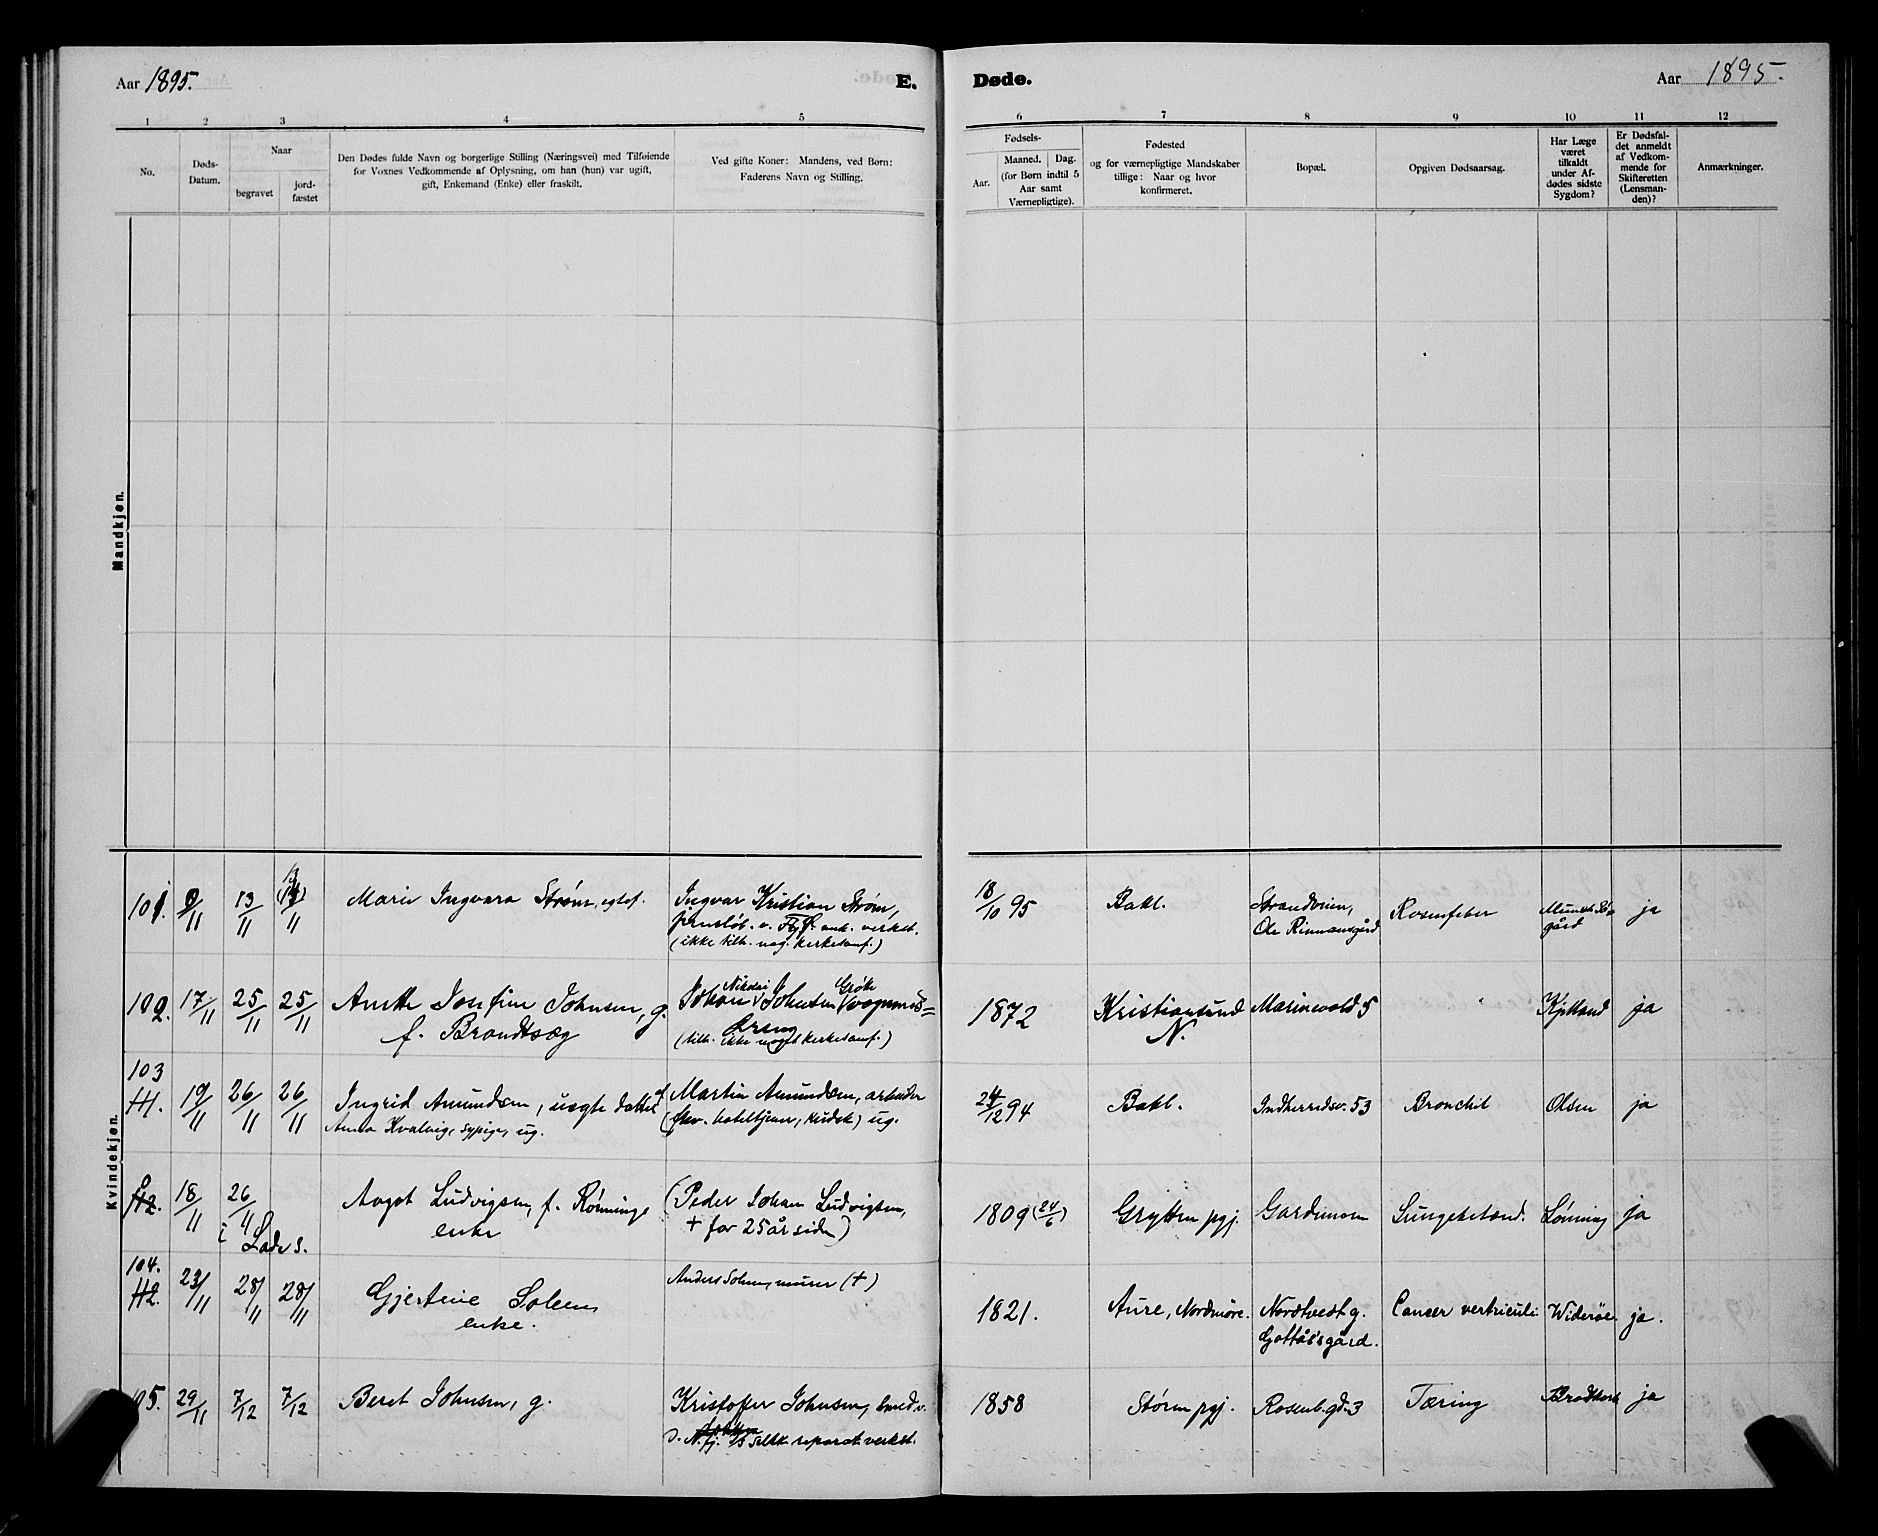 Aar 1895.
E.
Døde.
Aar 1895.
1 2 3 4 5 6 7 8 9 10 11 12
No.
Døds-
Datum.
Naar
begravet
jord-
fæstet
Den Dødes fulde Navn og borgerlige Stilling (Næringsvei) med Tilføiende
for Voxnes Vedkommende af Oplysning, om han (hun) var ugift,
gift, Enkemand (Enke) eller fraskilt.
Ved gifte Koner: Mandens, ved Børn:
Faderens Navn og Stilling.
Fødsels-
Aar.
Maaned. Dag.
(for Børn indtil 5
Aar samt
Værnepligtige).
Fødested
og for værnepligtige Mandskaber
tillige: Naar og hvor
konfirmeret.
Bopæl.
Opgiven Dødsaarsag.
Har Læge
været
tilkaldt
under Af-
dødes sidste
Sygdom?
Er Dødsfal-
det anmeldt
af Vedkom-
mende for
Skifteretten
(Lensman-
den)?
Anmærkninger.
Mandkjøn.
Kvindekjøn.
101. 9/11 13/11 13/11 Marie Ingvara Strøm, egtef.
Ingvar Kristian Strøm,
(ikke tilh. nog. kirkesamf.)
18/10 95 Bakl. Strandveien,
Ole Rinnansgård
Rosenfeber ja
102. 17/11 25/11 25/11 Anette Josefine Johnsen, g.
f. Brandtsæg
Johan Nikolai Johnsen
(tilh. ikke noget kirkesamf.)
1872 Kristiansund
N.
Marinevold 5 ja
103
111. 19/11 26/11 26/11 Ingrid Amundsen, uegte datter af
Anna Kvalvig, sypige, ug.
Martin Amundsen, arbeider
(fhv. hotelltjener, kudsk) ug.
24/12 94 Bakl. Indherredsv. 53 Bronchit Olsen ja
112. 18/11 26/11
i Lade s.
Angot Ludvigsen, f. Rønninge
enke
(Peder Johan Ludvigsen,
+ for 25 år siden)
1809 (24/6) Grytten pgj. Gardemoen Lungebetænd. Lønning ja
104.
112. 23/11 28/11 28/11 Gjertine Solem
enke.
Anders Solem, murer (+)
1821. Aure, Nordmøre. Nordtvedt g.
Gottåsgård.
Cancer ventriculi Widerøe ja.
105. 29/11 7/12 7/12 Beret Johnsen, g.
Kristoffer Johnsen, smed v.
reparat. verkst.
1858 Støren pgj. Rosenb. gd. 3 Tæring ja